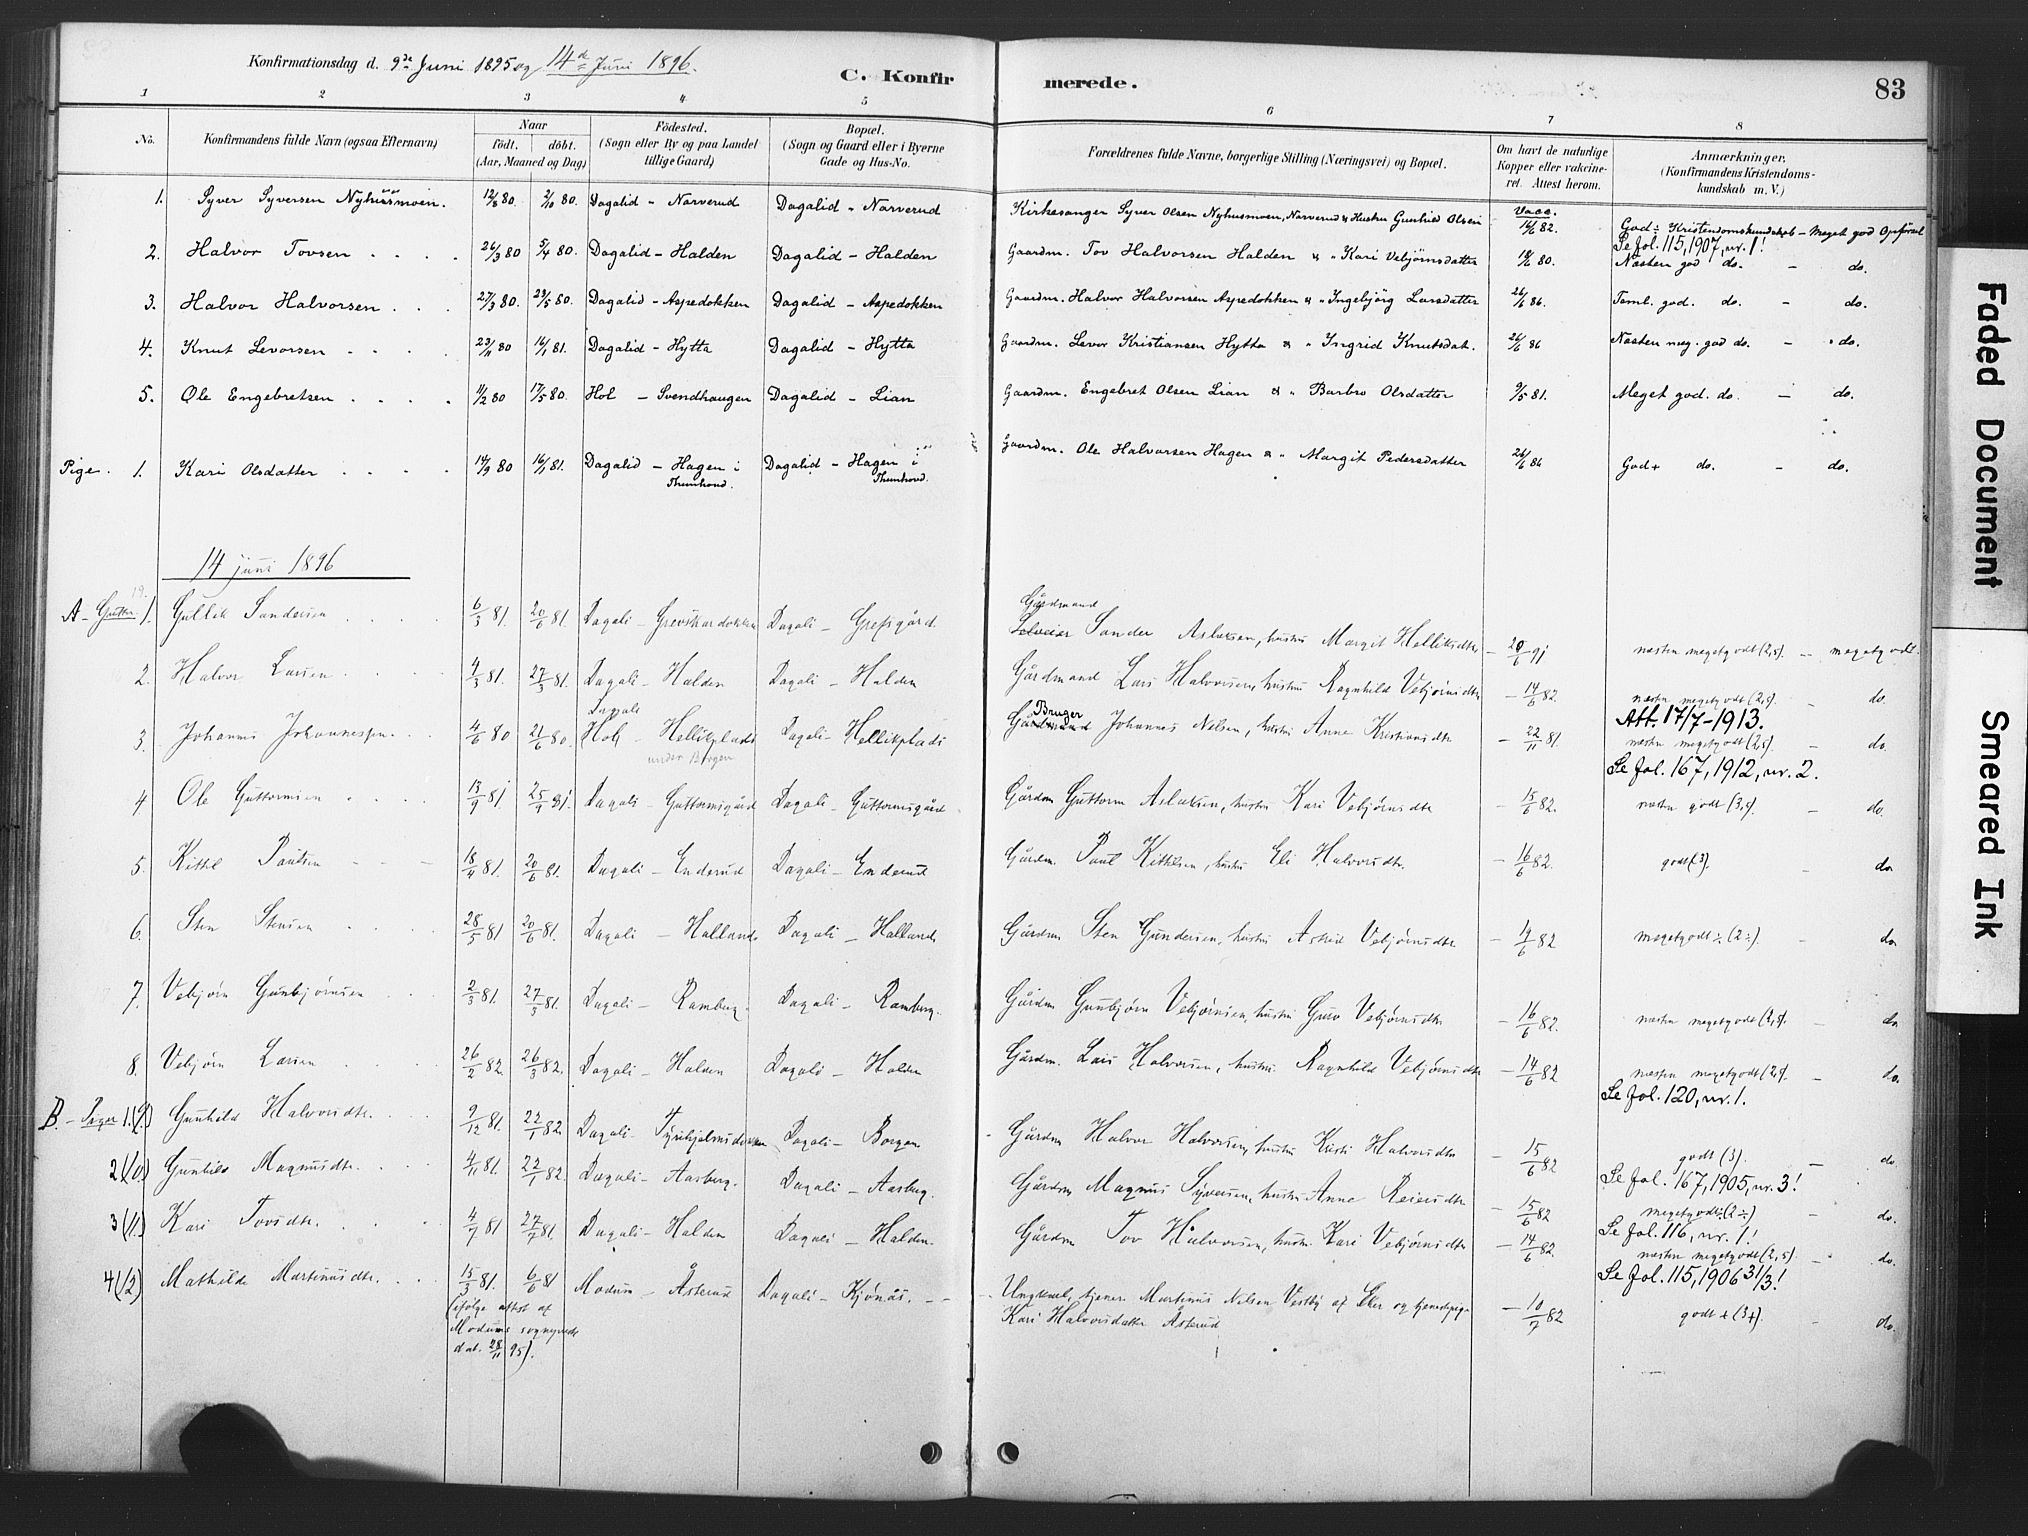 Konfirmationsdag d. 9de Juni 1895 og 14de Juni 1896.
C. Konfirmerede.
83
1 2 3 4 5 6 7 8
No.
Konfirmandens fulde Navn (ogsaa Efternavn)
Naar födt. döbt. (Aar, Maaned og Dag)
Födested. (Sogn eller By og paa Landet tillige Gaard)
Bopæl. (Sogn og Gaard eller i Byerne Gade og Hus-No.
Forældrenes fulde Navne, borgerlige Stilling (Næringsvei) og Bopæl.
Om havt de naturlige Kopper eller vakcineret. Attest herom.
Anmærkninger. (Konfirmandens Kristendomskundskab m. V.)
1. Syver Syversen Nyhusmoen. 12/8 80. 2/10 80. Dagalid - Narverud Dagalid - Narverud Kirkesanger Syver Olsen Nyhusmoen, Narverud & Hustru Gunhild Olsen Vacc. 16/6 82. God ÷ Kristendomskundskab - Meget god Opførsel
Se fol. 115, 1907, nr. 1!
2. Halvor Tovsen 26/3 80 5/4 80. Dagalid - Halden Dagalid - Halden Gaardm. Tov Halvorsen Halden & " Kari Vebjörnsdatter 18/6 80. Næsten god do. - do.
3. Halvor Halvorsen 27/3 80. 23/5 80. Dagalid - Aspedokken Dagalid - Aspedokken Gaardm. Halvor Halvorsen Aspedokken & " Ingebjörg Larsdatter 26/6 86. Teml. god. do. - do.
4. Knut Levorsen 23/11 80 16/1 81. Dagalid - Hytta Dagalid - Hytta Gaardm. Levor Kristiansen Hytta & " Ingrid Knutsdat. 26/6 86 Næsten meg. god do. - do.
5. Ole Engebretsen 11/2 80 17/5 80. Hol - Svendhaugen Dagalid - Lian Gaardm. Engebret Olsen Lian & " Barbro Olsdatter 9/5 81. Meget god. do. - do.
Pige. 1. Kari Olsdatter 14/9 80 16/1 81. Dagalid - Hagen i Thunhovd. Dagalid - Hagen i Thunhovd. Gaardm. Ole Halvorsen Hagen & " Margit Pedersdatter 26/6 86 God + do. - do.
14 juni 1896
A - Gutter. 1. Gullik Sandersen 6/3 81. 20/6 81. Dagali - Grevskardokken Dagali - Grefsgård. Gårdmand Sander Aslaksen, hustru Margit Helliksdtr - 20/6 91 næsten megetgodt (2,5). - megetgodt.
2. Halvor Larsen 4/3 81. 27/3 81. Dagali - Halden Dagali - Halden Gårdmand Lars Halvorsen, hustru Ragnhild Vebjørnsdtr - 14/6 82. næsten megetgodt (2,5). - do.
Att. 17/7-1913.
3. Johannes Johannessen 4/6 80 21/6 80. Dagali Hol - Hellikplads under Borgen Dagali - Hellikplads Bruger Gårdmand Johannes Nelsen, hustru Anne Kristiansdtr - 22/11 81. næsten megetgodt (2,5). - do.
Se fol. 167, 1912, nr. 2.
4 Ole Guttormsen 13/9 81 25/9 81. Dagali - Guttormsgård Dagali - Guttormsgård Gårdm Guttorm Aslaksen, hustru Kari Vebjørnsdtr - 15/6 82. næsten godt (3,5). - do.
5. Kittil Paulsen 18/4 81. 20/6 81. Dagali - Enderud Dagali - Enderud Gårdm. Paul Kittilsen, hustru Eli Halvorsdtr. - 16/6 82. godt (3). - do
6. Sten Stensen 28/5 81 20/6 81. Dagali - Halland Dagali - Halland Gårdm Sten Gundersen, hustru Astrid Vebjørnsdtr - 14/6 82 megetgodt ÷ (2÷). - do
7. Vebjørn Gunbjørnsen 2/3 81. 27/3 81. Dagali - Ramberg. Dagali - Ramberg. Gårdm Gunbjørn Vebjørnsen, hustru Guro Vebjørnsdtr - 16/6 82. næsten megetgodt (2,5). - do
8. Vebjørn Larsen 26/2 82. 26/3 82. Dagali - Halden Dagali - Halden Gårdm. Lars Halvorsen, hustru Ragnhild Vebjørnsdtr - 14/6 82 næsten megetgodt (2,5). - do
Se fol. 120, nr. 1.
B. - Piger 1. (9.) Gunhild Halvorsdtr. 9/12 81. 22/1 82. Dagali - Dagali - Borgen Gårdm Halvor Halvorsen, hustru Kristi Halvorsdtr - 15/6 82 godt (3). - do.
Se fol. 167, 1905, nr. 3!
2 (10.) Gunhild Magnusdtr. 4/11 81. 22/1 82. Dagali - Aasberg. Dagali - Aasberg. Gårdm Magnus Syversen, hustru Anne Reiersdtr - 15/6 82 megetgodt ÷ (2÷) - do.
Se fol. 116, nr. 1!
3 (11.) Kari Tovsdtr. 4/7 81 27/7 81. Dagali - Halden Dagali - Halden. Gårdm Tov Halvorsen, hustru Kari Vebjørnsdtr - 14/6 82. næsten megetgodt (2,5) - do.
Se fol. 115, 1906 31/3!
4 (12) Mathilde Martinusdtr. 15/3 81. 6/6 81 Modum - Åsterud Dagali - Kjønås. Ungkarl, tjener Martinus Nilsen Vestby af Eker og tjenestepige - 10/7 82 godt + (3+). - do.
(ifølge attest af Modums sogneprest dat. 28/11 95). Kari Halvorsdatter Åsterud
Faded Document
Smeared Ink